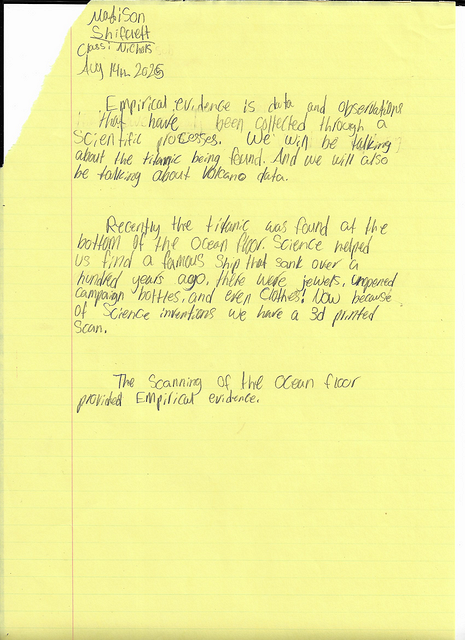 Madison
Shifcreft
Class: Nichols
Aug 14th 2025
Empirical evidence is data and observations
that have been collected through a
Scientific processes. We will be talking
about the titanic being found. And we will also
be talking about volcano data.
Recently the titanic was found at the
bottom of the ocean floor. Science helped
us find a famous ship that sank over a
hundred years ago. there were jewels, unopened
campaign bottles, and even clothes! Now because
of Science inventions we have a 3d printed
scan.
The scanning of the ocean floor
provided Empirical evidence.